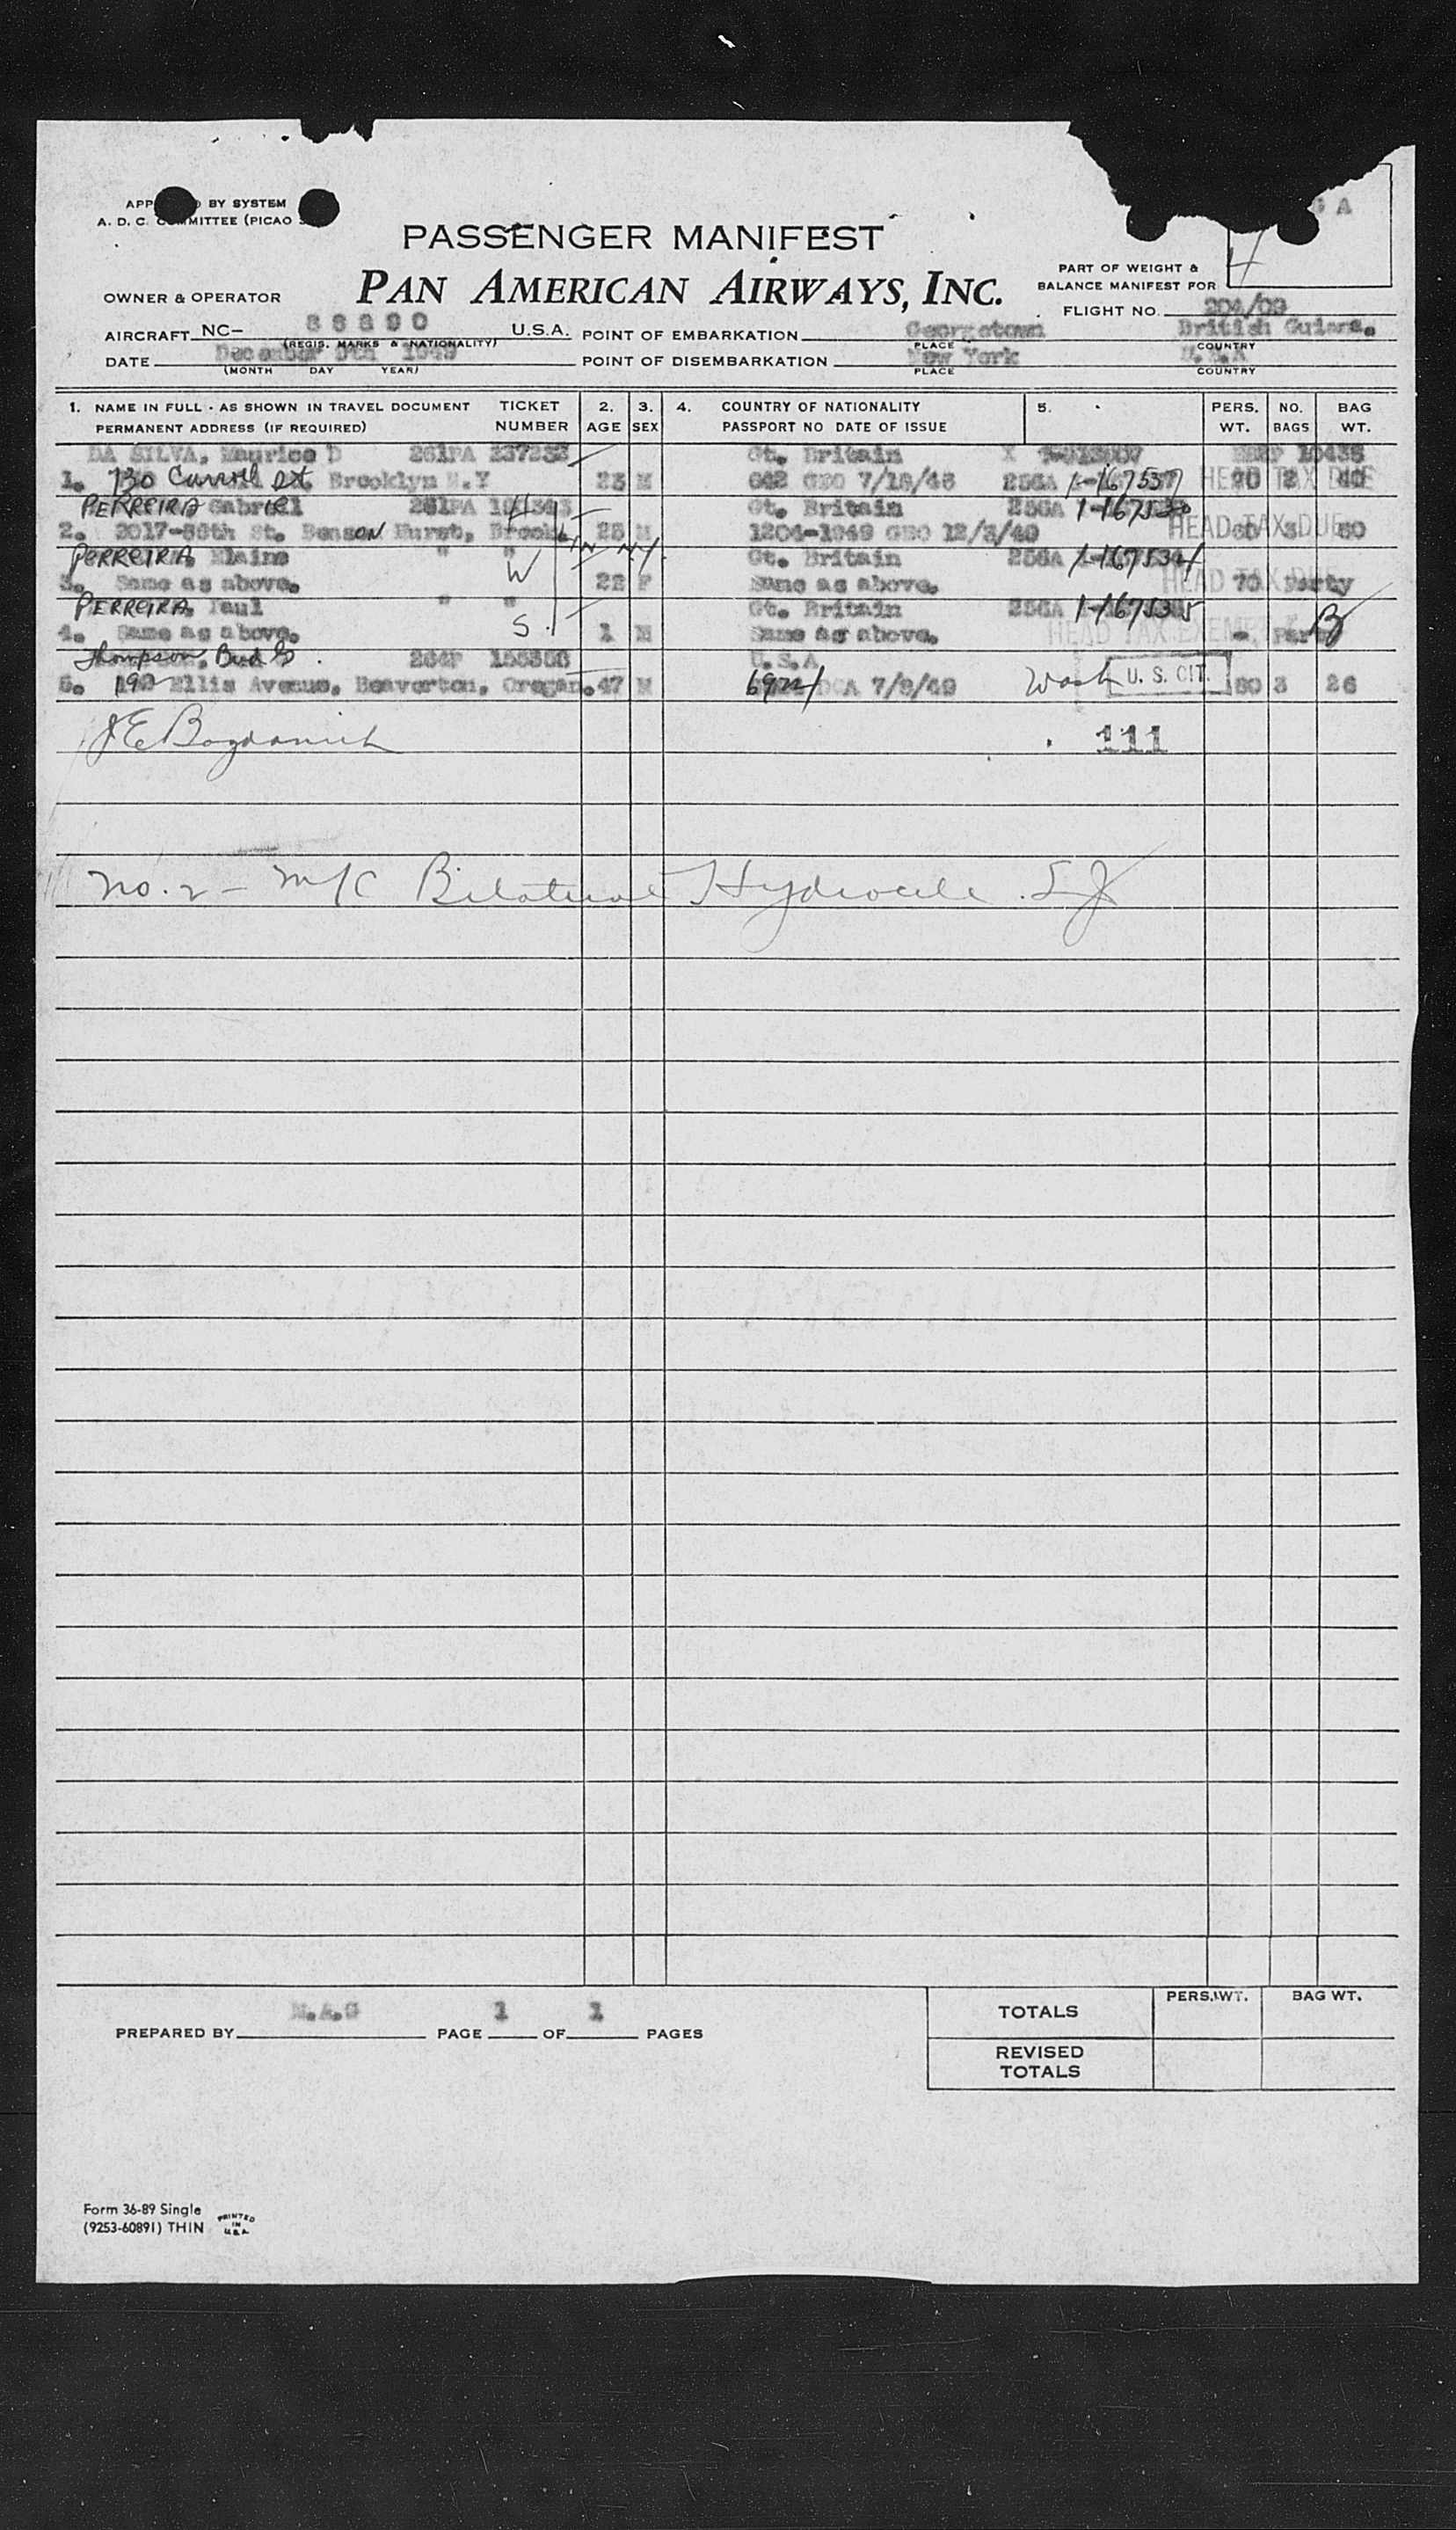 BY SYSTEM
A. D. C. COMMITTEE (PICAO
PASSENGER MANIFEST
PAN AMERICAN AIRWAYS, INC.
PART OF WEIGHT &
BALANCE MANIFEST FOR
OWNER & OPERATOR
FLIGHT NO. 204/09
AIRCRAFT NC- 88890 U.S.A. POINT OF EMBARKATION Georgetown British Guiana.
(REGIS. MARKS & NATIONALITY) PLACE COUNTRY
DATE December 9th 1949 POINT OF DISEMBARKATION New York U.S.A
(MONTH DAY YEAR) PLACE COUNTRY
1. NAME IN FULL - AS SHOWN IN TRAVEL DOCUMENT TICKET 2. 3. 4. COUNTRY OF NATIONALITY 5. PERS. NO. BAG
PERMANENT ADDRESS (IF REQUIRED) NUMBER AGE SEX PASSPORT NO DATE OF ISSUE WT. BAGS WT.
DA SILVA, Maurice D 261PA 237233 Gt. Britain X
1. 730 Carroll St. Brooklyn N.Y 23 M 642 GEO 7/18/48 256A 1-167537 HEAD TAX DUE 90 2 40
PERREIRA Gabriel 261PA H Gt. Britain 256A
2. 2017-86th St. Benson Hurst, Brook 28 M 1204-1949 GEO 12/3/49 HEAD TAX DUE 3
PERREIRA, Elaine " " W Gt. Britain 256A 1-167534
3. Same as above. 22 F Same as above. HEAD TAX 70 Party
PERREIRA, Paul " " Gt. Britain 256A 1-167535
4. Same as above. S. 1 M Same as above. HEAD TAX EXEMPT - Party
Thompson, Bud G. 264P U.S.A
5. 190 Ellis Avenue, Beaverton, Oregon. 47 M DCA 7/8/49 Wash U. S. CIT. 80 3 26
JE Bogdanich 111
No. 2 - M/C Bilateral Hydrocele. SJ
PREPARED BY M.A.G PAGE 1 OF 1 PAGES
TOTALS PERS. WT. BAG WT.
REVISED
TOTALS
Form 36-89 Single
(9253-60891) THIN
PRINTED
IN
U.S.A.